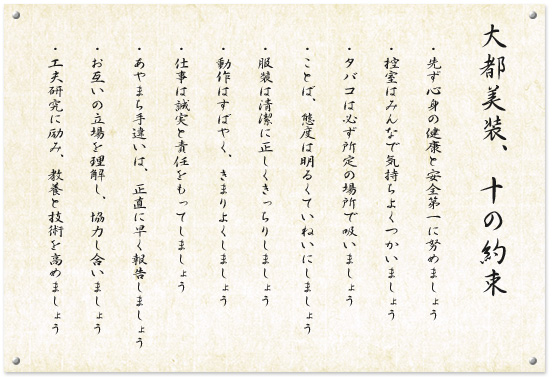 大都美装、十の約束
・先ず心身の健康と安全第一に努めましょう
・控室はみんなで気持ちよくつかいましょう
・タバコは必ず所定の場所で吸いましょう
・ことば、態度は明るくていねいにしましょう
・服装は清潔に正しくきっちりしましょう
・動作はすばやく、きまりよくしましょう
・仕事は誠実と責任をもってしましょう
・あやまち手違いは、正直に早く報告しましょう
・お互いの立場を理解し、協力し合いましょう
・工夫研究に励み、教養と技術を高めましょう